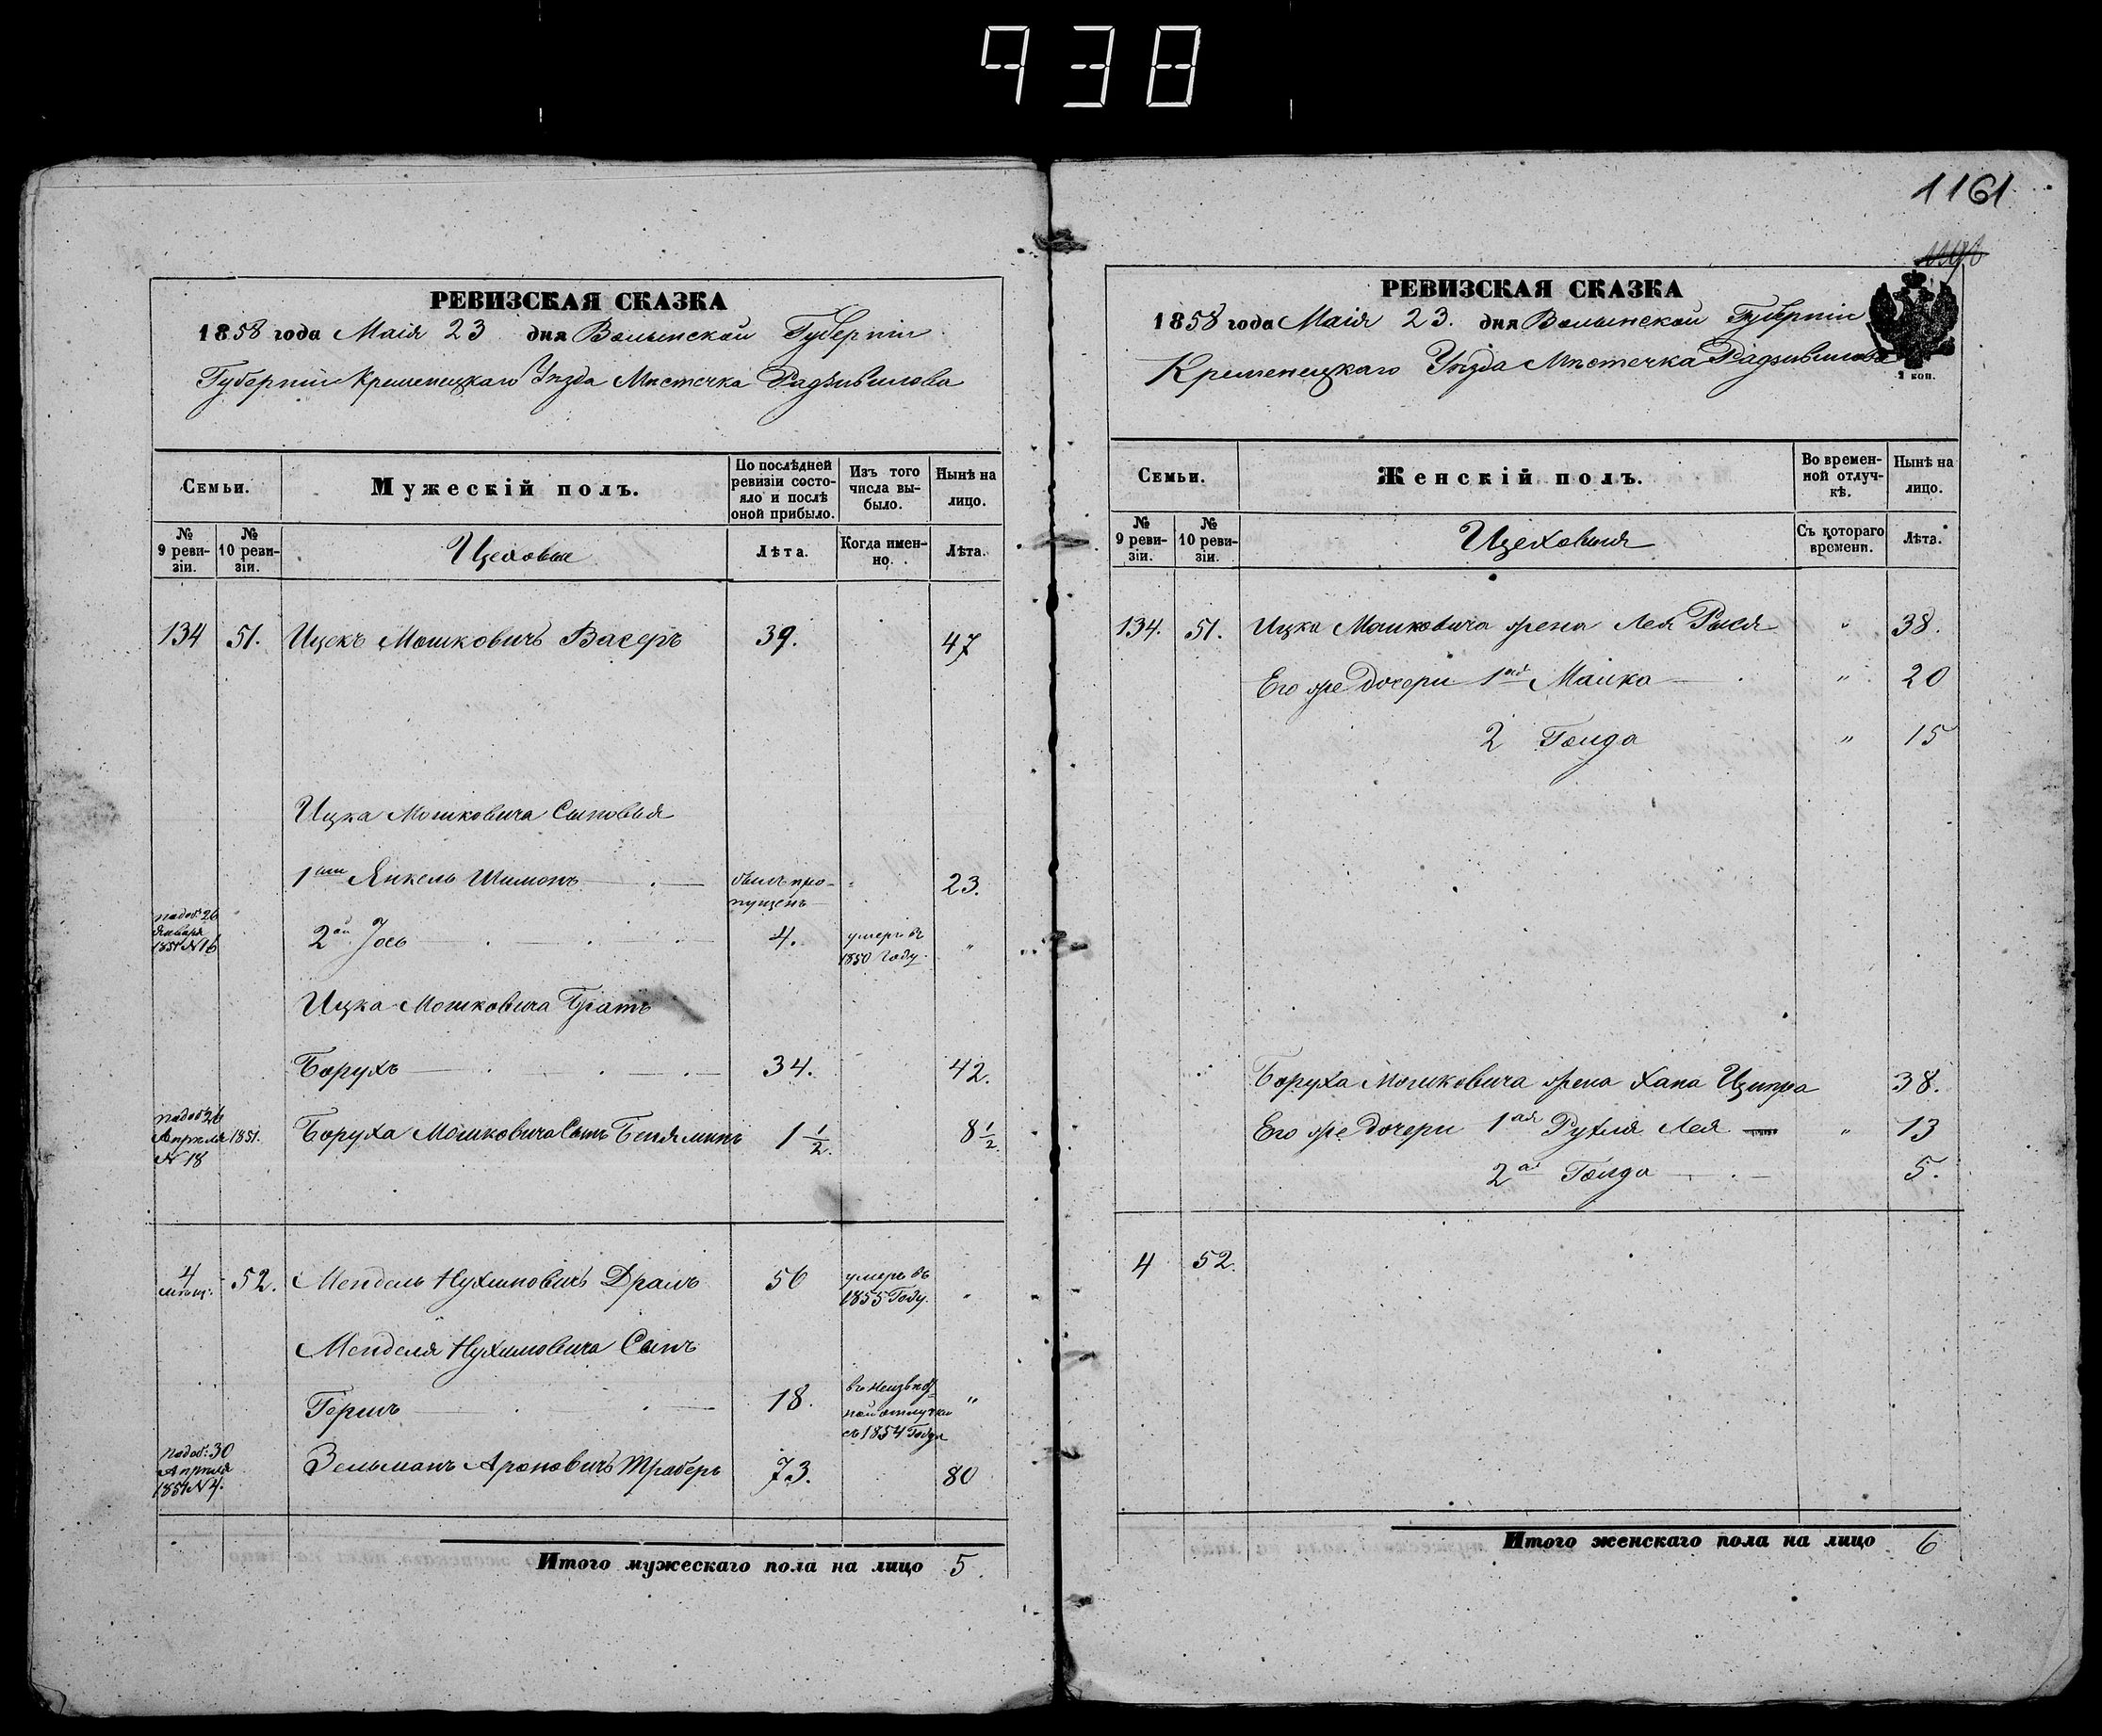 938
1161
РЕВИЗСКАЯ СКАЗКА
1858 года Маія 23 дня Волынской Губерніи
Губерніи Кременецкаго Уѣзда Мѣстечка Радзивилова
Семьи.
Мужескій полъ.
По послѣдней ревизіи состояло и послѣ оной прибыло.
Изъ того числа выбыло.
Нынѣ на лицо.
№ 9 ревизіи.
№ 10 ревизіи.
Цеховые
Лѣта.
Когда именно.
Лѣта.
134 51. Ицекъ Мошковичъ Васеръ 39. 47
Ицка Мошковича Сыновья
1ый Янкель Шимонъ былъ пропущенъ 23.
по доб: 26 Января 1851 N 16 2ой Іось 4. умеръ въ 1850 Году. „
Ицка Мошковича Братъ
Борухъ 34. 42.
по доб: 26 Апрѣля 1851. N 18 Боруха Мошковича Сынъ Беніяминъ 1 1/2. 8 1/2.
4 мѣщ: 52. Мендель Нухимовичъ Драмъ 56 умеръ въ 1855 Году. „
Менделя Нухимовича Сынъ
Гершъ 18. въ неизвѣстной отлучки съ 1854 Года „
по доб: 30 Апрѣля 1851 N 4. Зельманъ Ароновичъ Траберъ 73. 80
Итого мужескаго пола на лицо 5.
РЕВИЗСКАЯ СКАЗКА
1858 года Маія 23. дня Волынской Губерніи
Кременецкаго Уѣзда Мѣстечка Радзивилова
2 коп.
Семьи.
Женскій полъ.
Во временной отлучкѣ.
Нынѣ на лицо.
№ 9 ревизіи.
№ 10 ревизіи.
Цеховыя
Съ котораго времени.
Лѣта.
134. 51. Ицка Мошковича жена Лея Рыся „ 38.
Его же дочери 1ая Маика „ 20
2 Голда „ 15
Боруха Мошковича жена Хана Ципра 38.
Его же дочери 1ая Рухля Лея „ 13
2ая Голда 5.
4 52.
Итого женскаго пола на лицо 6